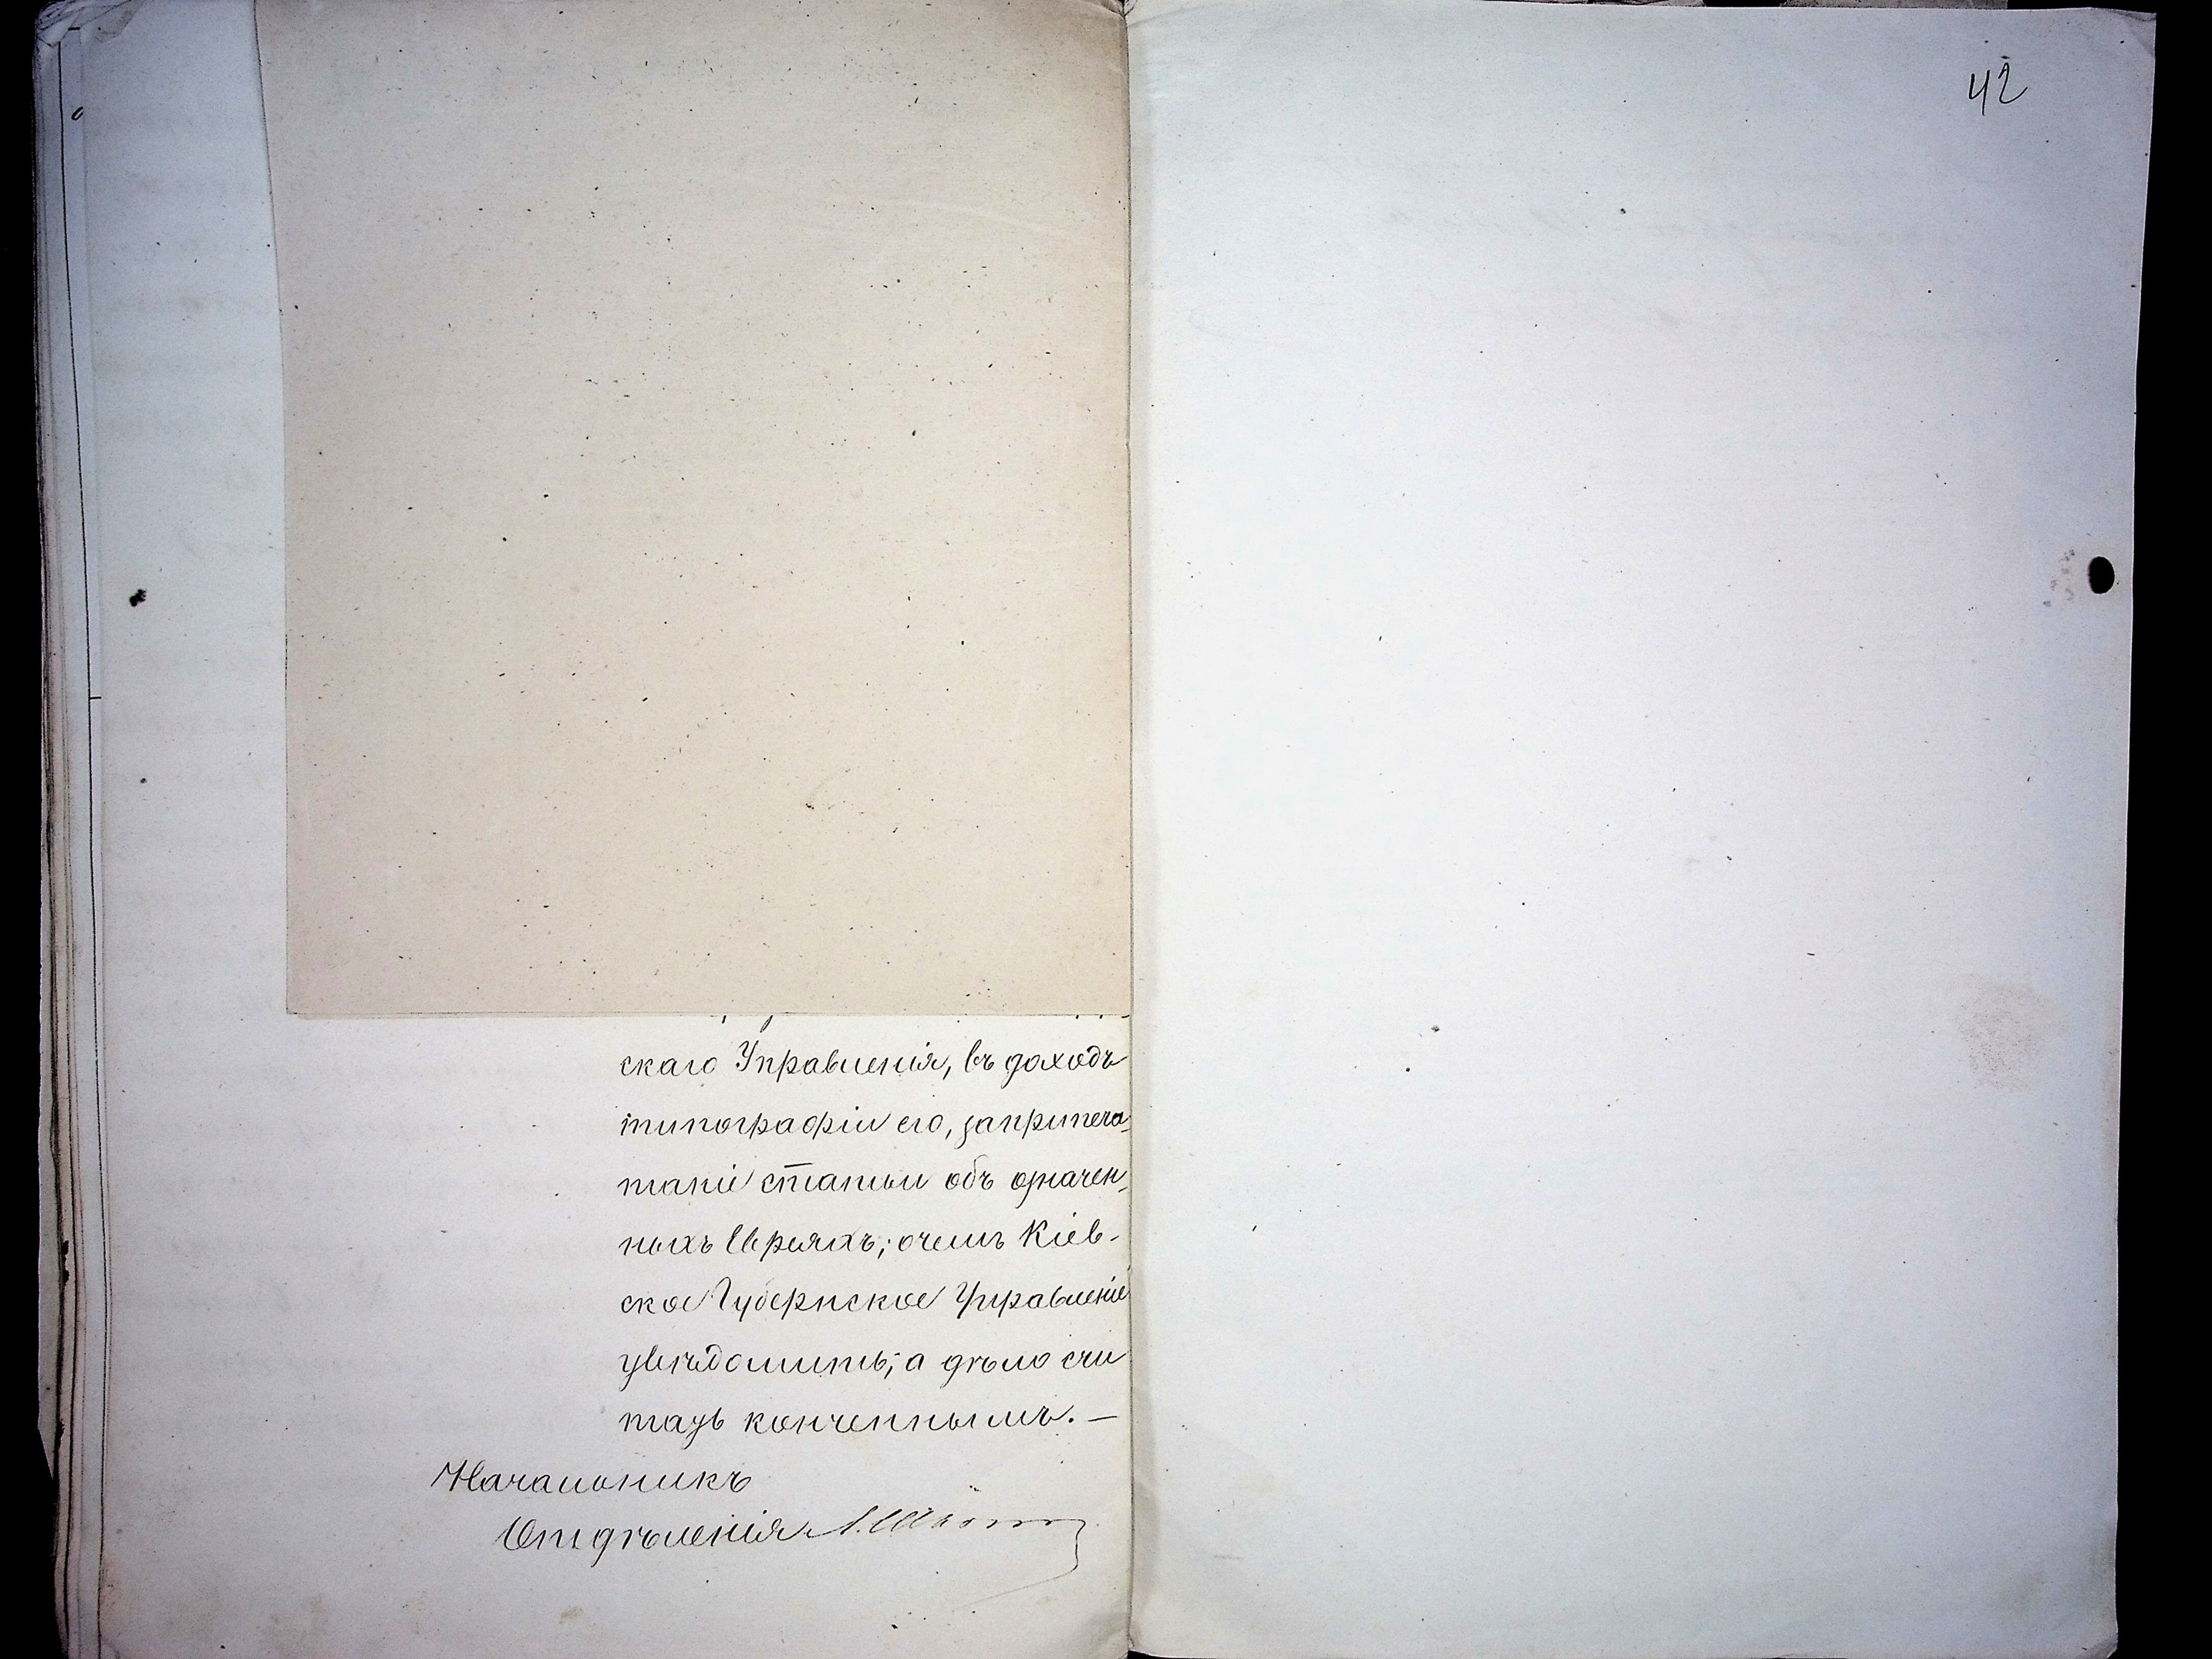 42
скаго Управленія, въ доходъ
типографіи его, за припеча-
таніе статьи объ означен-
ныхъ Евреяхъ; о чемъ Кіев-
ское Губернское Управленіе
увѣдомить; а дѣло счи
тать конченнымъ. —
Начальникъ
Отдѣленія